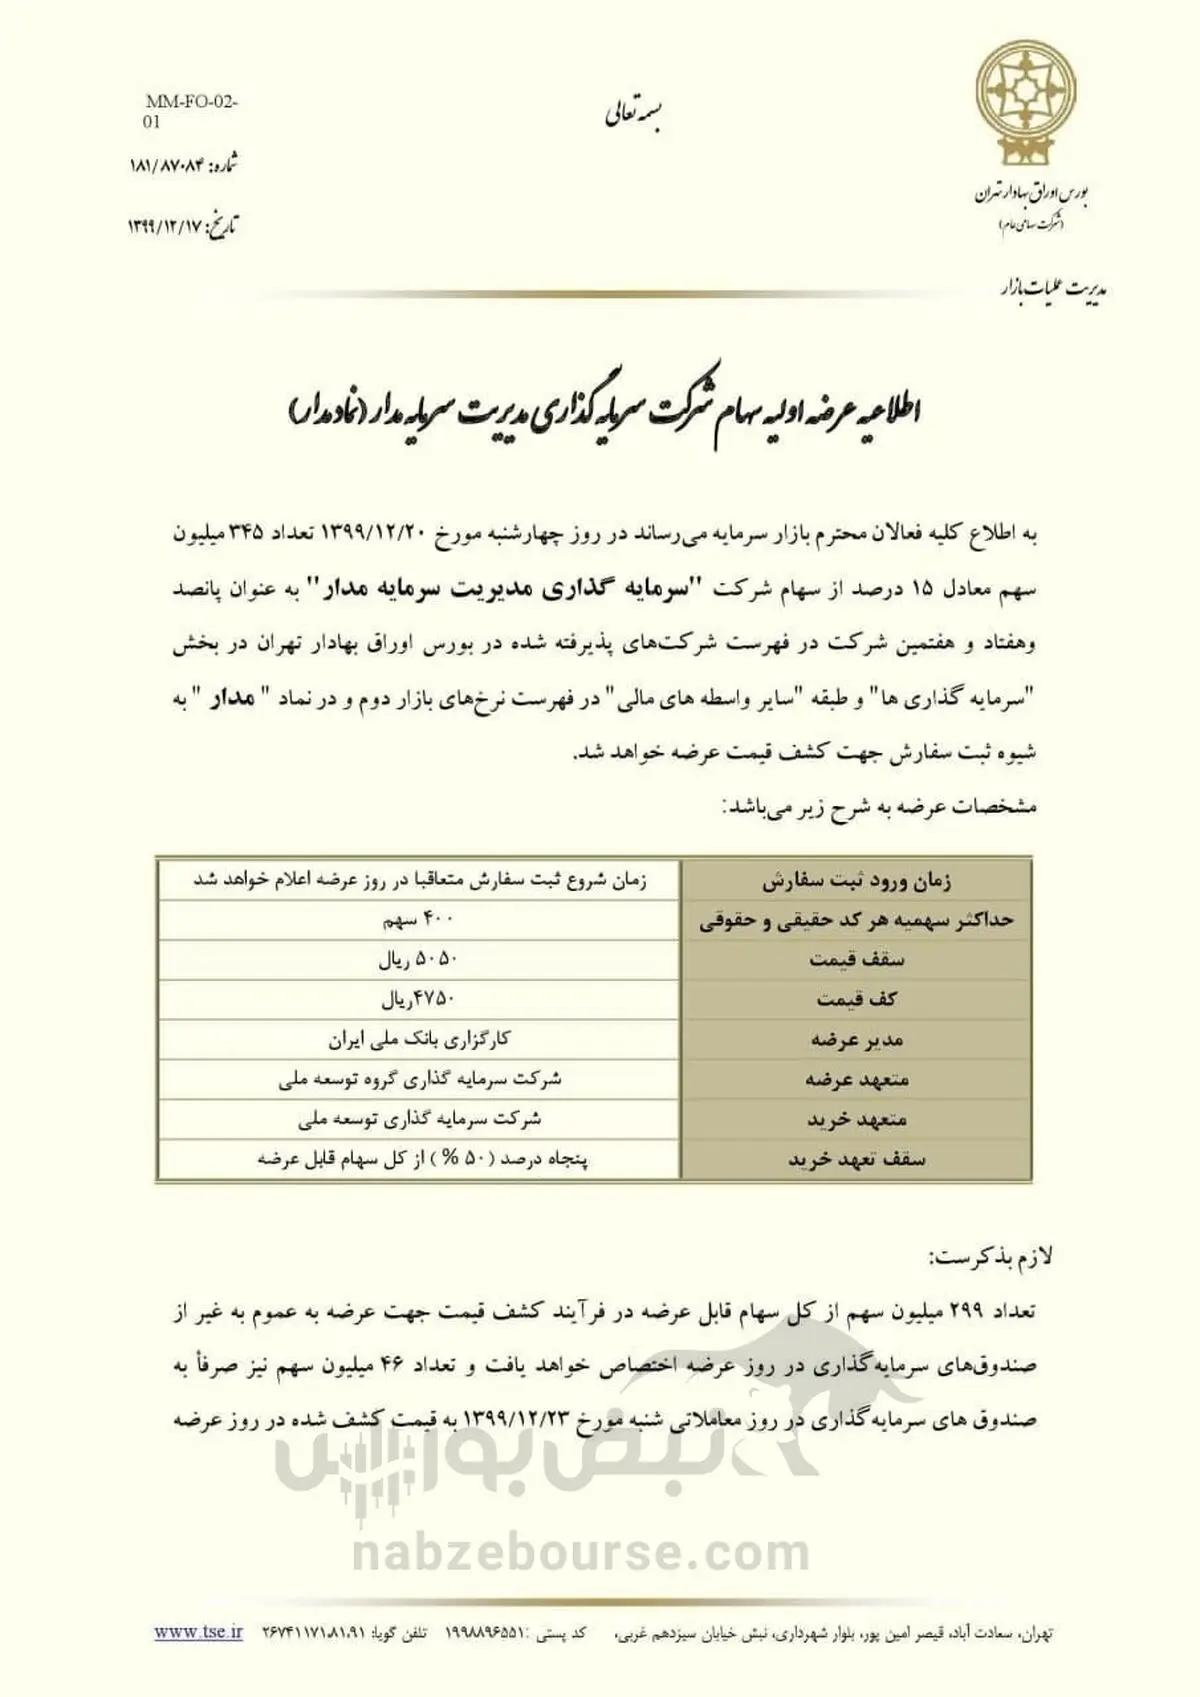 MM-FO-02-
01
بسمه تعالی
شماره: ۱۸۱/۸۷۰۸۴
تاریخ: ۱۳۹۹/۱۲/۱۷
بورس اوراق بهادار تهران
(شرکت سهامی عام)
مدیریت عملیات بازار
اطلاعیه عرضه اولیه سهام شرکت سرمایه گذاری مدیریت سرمایه مدار (نماد مدار)
به اطلاع کلیه فعالان محترم بازار سرمایه می‌رساند در روز چهارشنبه مورخ ۱۳۹۹/۱۲/۲۰ تعداد ۳۴۵ میلیون
سهم معادل ۱۵ درصد از سهام شرکت "سرمایه گذاری مدیریت سرمایه مدار" به عنوان پانصد
وهفتاد و هفتمین شرکت در فهرست شرکت‌های پذیرفته شده در بورس اوراق بهادار تهران در بخش
"سرمایه گذاری ها" و طبقه "سایر واسطه های مالی" در فهرست نرخ‌های بازار دوم و در نماد " مدار " به
شیوه ثبت سفارش جهت کشف قیمت عرضه خواهد شد.
مشخصات عرضه به شرح زیر می‌باشد:
زمان ورود ثبت سفارش زمان شروع ثبت سفارش متعاقبا در روز عرضه اعلام خواهد شد
حداکثر سهمیه هر کد حقیقی و حقوقی ۴۰۰ سهم
سقف قیمت ۵۰۵۰ ریال
کف قیمت ۴۷۵۰ریال
مدیر عرضه کارگزاری بانک ملی ایران
متعهد عرضه شرکت سرمایه گذاری گروه توسعه ملی
متعهد خرید شرکت سرمایه گذاری توسعه ملی
سقف تعهد خرید پنجاه درصد (۵۰ %) از کل سهام قابل عرضه
لازم بذکرست:
تعداد ۲۹۹ میلیون سهم از کل سهام قابل عرضه در فرآیند کشف قیمت جهت عرضه به عموم به غیر از
صندوق‌های سرمایه‌گذاری در روز عرضه اختصاص خواهد یافت و تعداد ۴۶ میلیون سهم نیز صرفاً به
صندوق های سرمایه‌گذاری در روز معاملاتی شنبه مورخ ۱۳۹۹/۱۲/۲۳ به قیمت کشف شده در روز عرضه
نبض بورس
nabzebourse.com
تهران، سعادت آباد، قیصر امین پور، بلوار شهرداری، نبش خیابان سیزدهم غربی، کد پستی :۱۹۹۸۸۹۶۵۵۱ تلفن گویا: ۲۶۷۴۱۱۷۱،۸۱،۹۱ www.tse.ir